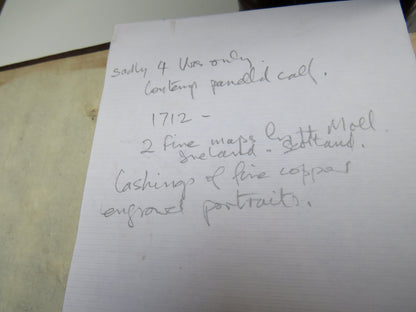 Sadly 4 vols only.
Contemp panelld calf.
1712 -
2 fine maps by H Moll
Ireland - Scotland.
Lashings of fine copper
engraved portraits.